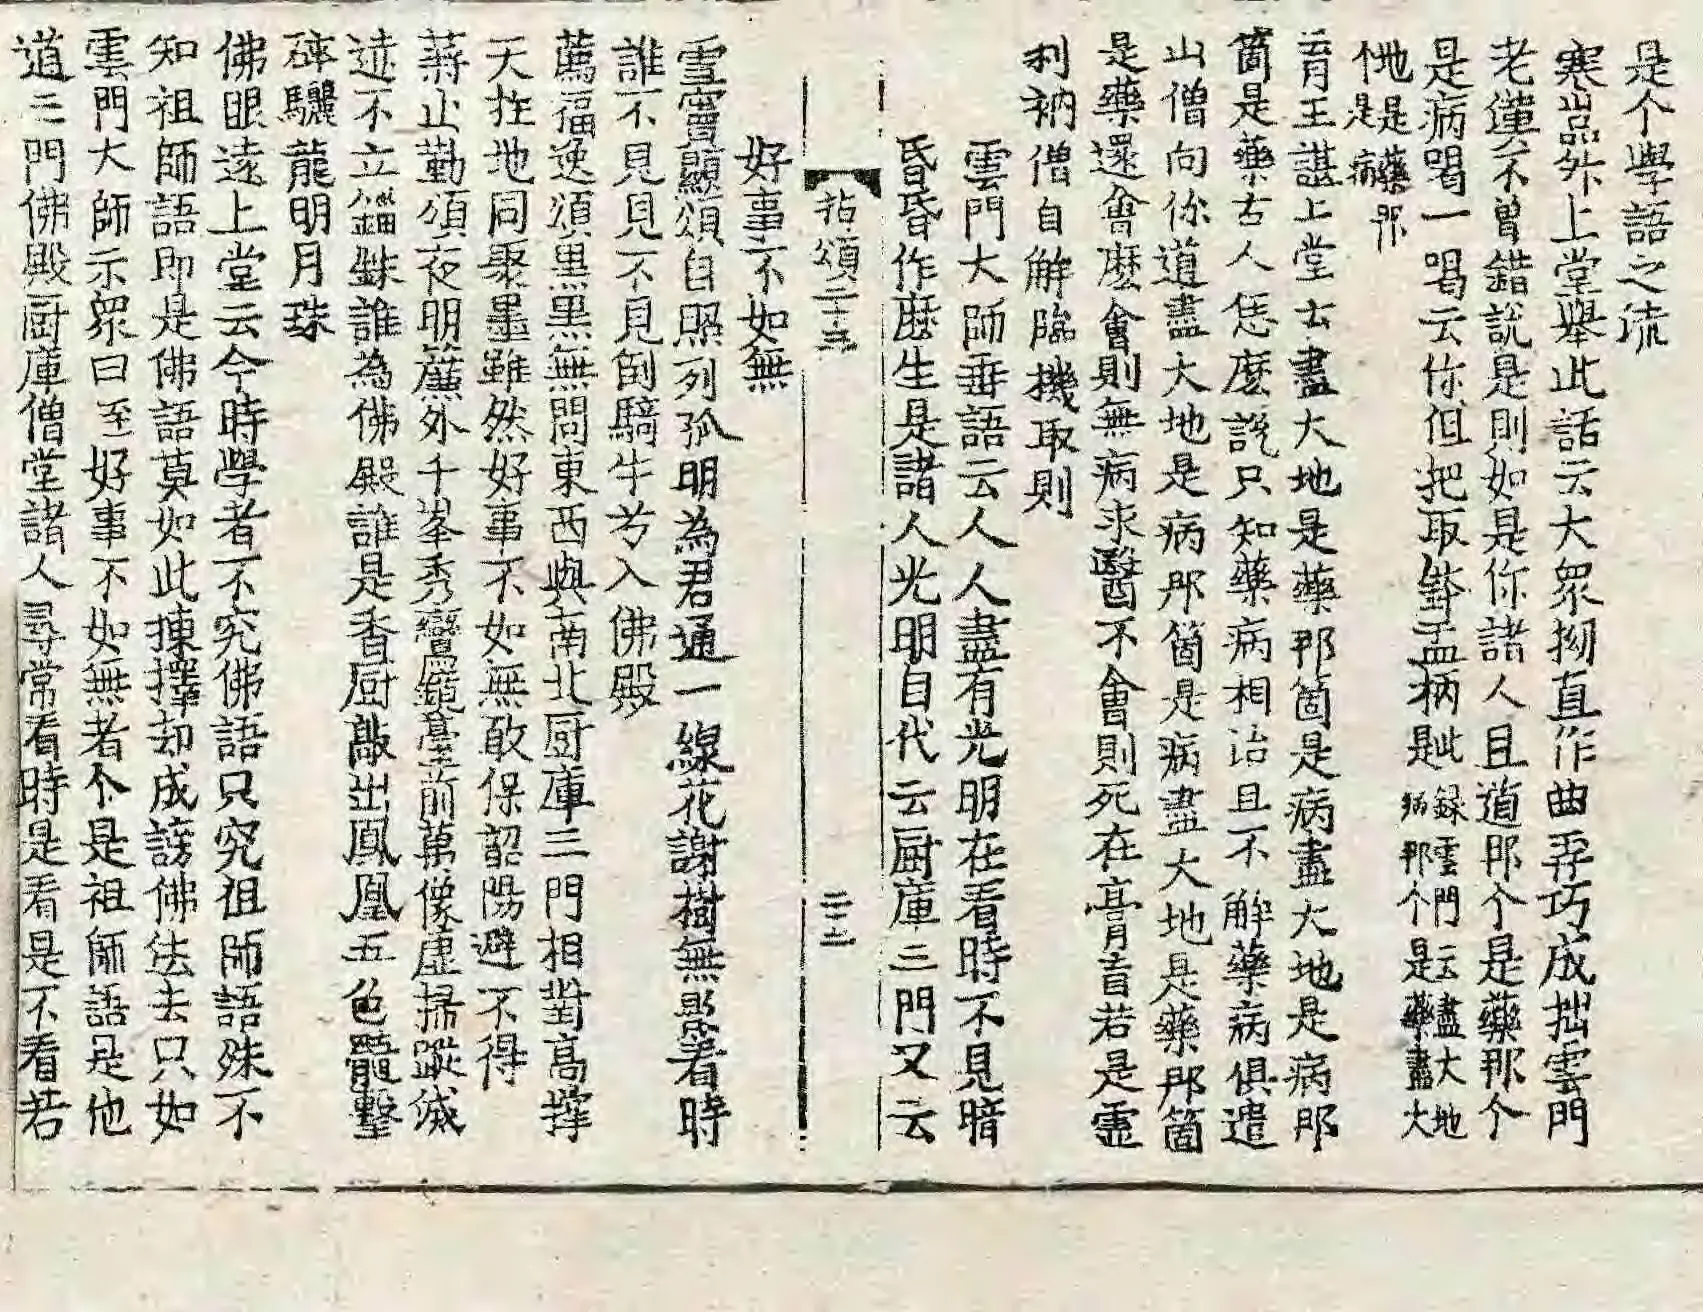 是个學語之流
寒嵓外上堂舉此話云大眾拗直作曲弄巧成拙雲門
老漢不曾錯說是則如是你諸人且道那个是藥那个
是病喝一喝云你但把取鉢盂柄是此録雲門云盡大地病那个是藥盡大
地是藥那个是病
育王諶上堂云盡大地是藥那箇是病盡大地是病那
箇是藥古人恁麽說只知藥病相治且不解藥病俱遣
山僧向你道盡大地是病那箇是病盡大地是藥那箇
是藥還會麽會則無病求醫不會則死在膏肓若是靈
利衲僧自解臨機取則
雲門大師垂語云人人盡有光明在看時不見暗
昏昏作麽生是諸人光明自代云厨庫三門又云
拈頌二十 二十二
好事不如無
雪竇顯頌自照列孤明為君通一線花謝樹無影看時
誰不見見不見倒騎牛兮入佛殿
薦福逸頌黑黑無問東西與南北厨庫三門相對高撑
天拄地同聚墨雖然好事不如無敢保韶陽避不得
蔣山勤頌夜明簾外千峯秀鸞鏡臺前萬像虛掃蹤滅
迹不立錙銖誰為佛殿誰是香厨敲出鳳凰五色髓擊
碎驪龍明月珠
佛眼遠上堂云今時學者不究佛語只究祖師語殊不
知祖師語即是佛語莫如此揀擇却成謗佛法去只如
雲門大師示眾曰至好事不如無者个是祖師語是他
道三門佛殿厨庫僧堂諸人尋常看時是看是不看若